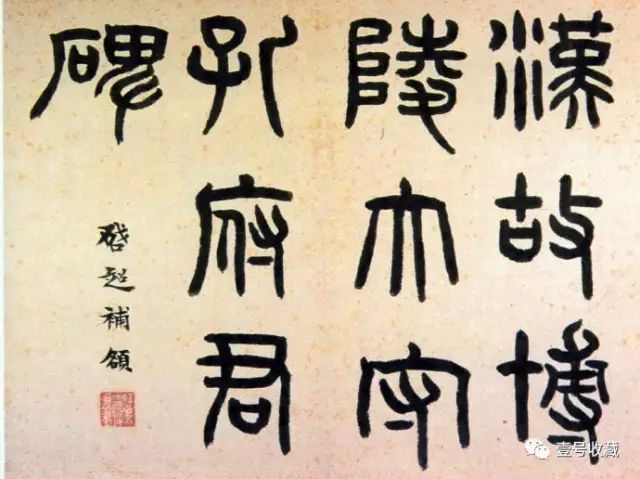 漢故博
陵太守
孔府君
碑
啓超補額
壹号收藏